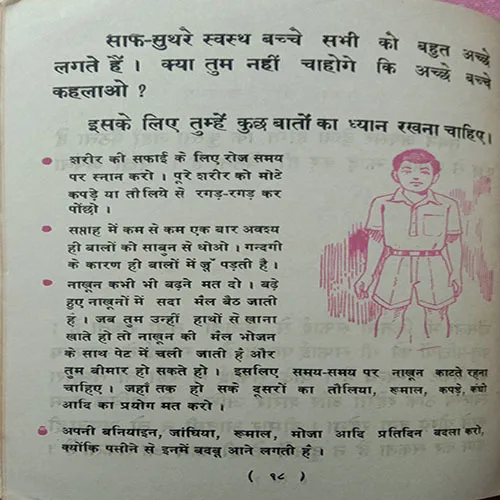 साफ-सुथरे स्वस्थ बच्चे सभी को बहुत अच्छे
लगते हैं । क्या तुम नहीं चाहोगे कि अच्छे बच्चे
कहलाओ ?
इसके लिए तुम्हें कुछ बातों का ध्यान रखना चाहिए।
● शरीर की सफाई के लिए रोज समय
पर स्नान करो । पूरे शरीर को मोटे
कपड़े या तौलिये से रगड़-रगड़ कर
पोंछो ।
● सप्ताह में कम से कम एक बार अवश्य
ही बालों को साबुन से धोओ । गन्दगी
के कारण ही बालों में जूँ पड़ती है ।
● नाखून कभी भी बढ़ने मत दो । बड़े
हुए नाखूनों में सदा मैल बैठ जाती
है । जब तुम उन्हीं हाथों से खाना
खाते हो तो नाखून की मैल भोजन
के साथ पेट में चली जाती है और
तुम बीमार हो सकते हो । इसलिए समय-समय पर नाखून काटते रहना
चाहिए । जहाँ तक हो सके दूसरों का तौलिया, रूमाल, कपड़े, कंघी
आदि का प्रयोग मत करो ।
● अपनी बनियाइन, जांघिया, रूमाल, मोजा आदि प्रतिदिन बदला करो,
क्योंकि पसीने से इनमें बदबू आने लगती है ।
( १८ )